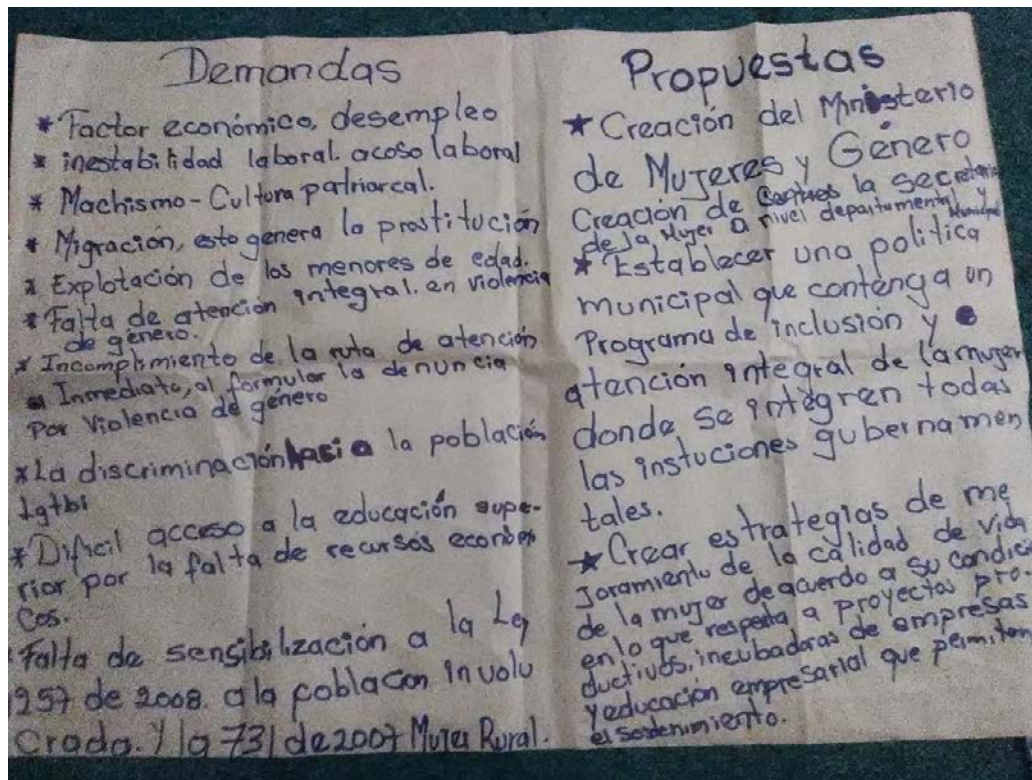 Demandas
* Factor económico, desempleo
* inestabilidad laboral. acoso laboral
* Machismo - Cultura patriarcal.
* Migración, esto genera la prostitución
* Explotación de los menores de edad.
* Falta de atención integral. en violencia
de género.
* Incumplimiento de la ruta de atención
Inmediata, al formular la denuncia
Por Violencia de género
* La discriminación hasia la población
Lgtbi
* Dificil acceso a la educación supe-
rior por la falta de recursos económi
Cos.
Falta de sensibilización a la Ley
1257 de 2008. a la poblacion involu
Crada. Y la 731 de 2007 Mujer Rural.
Propuestas
★ Creación del Ministerio
de Mujeres y Género
Creación de la Secretaria
de la Mujer a nivel departamental y
Municipal
★ Establecer una politica
municipal que contenga un
Programa de inclusión y
atención integral de la mujer
donde se integren todas
las instuciones gubernamen
tales.
★ Crear estrategias de me
Joramiento de la calidad de vida
de la mujer de acuerdo a su condici
en lo que respecta a proyectos pro-
ductivos, incubadoras de empresas
y educación empresarial que permitan
el sostenimiento.